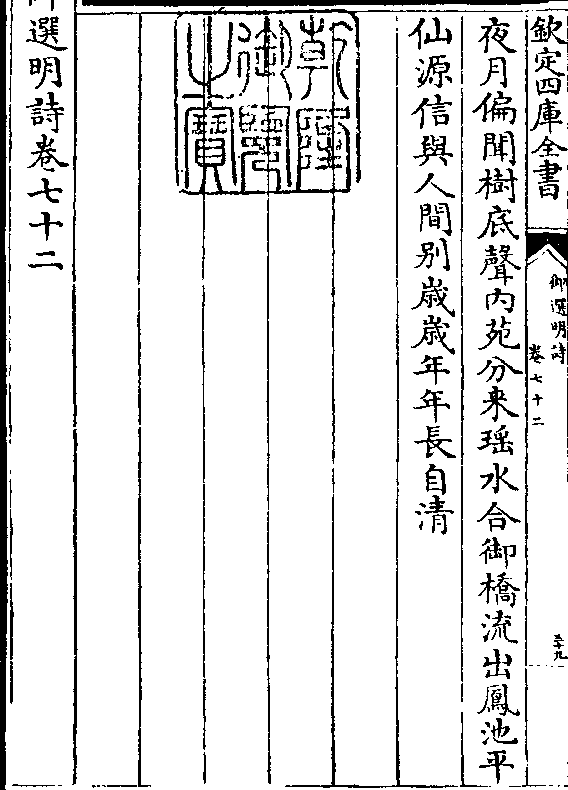 欽定四庫全書
御選明詩
卷七十二
三十九
夜月偏聞樹底聲内苑分来瑶水合御橋流出鳳池平
仙源信與人間别歲歲年年長自清
乾隆御覽之寶
御選明詩卷七十二